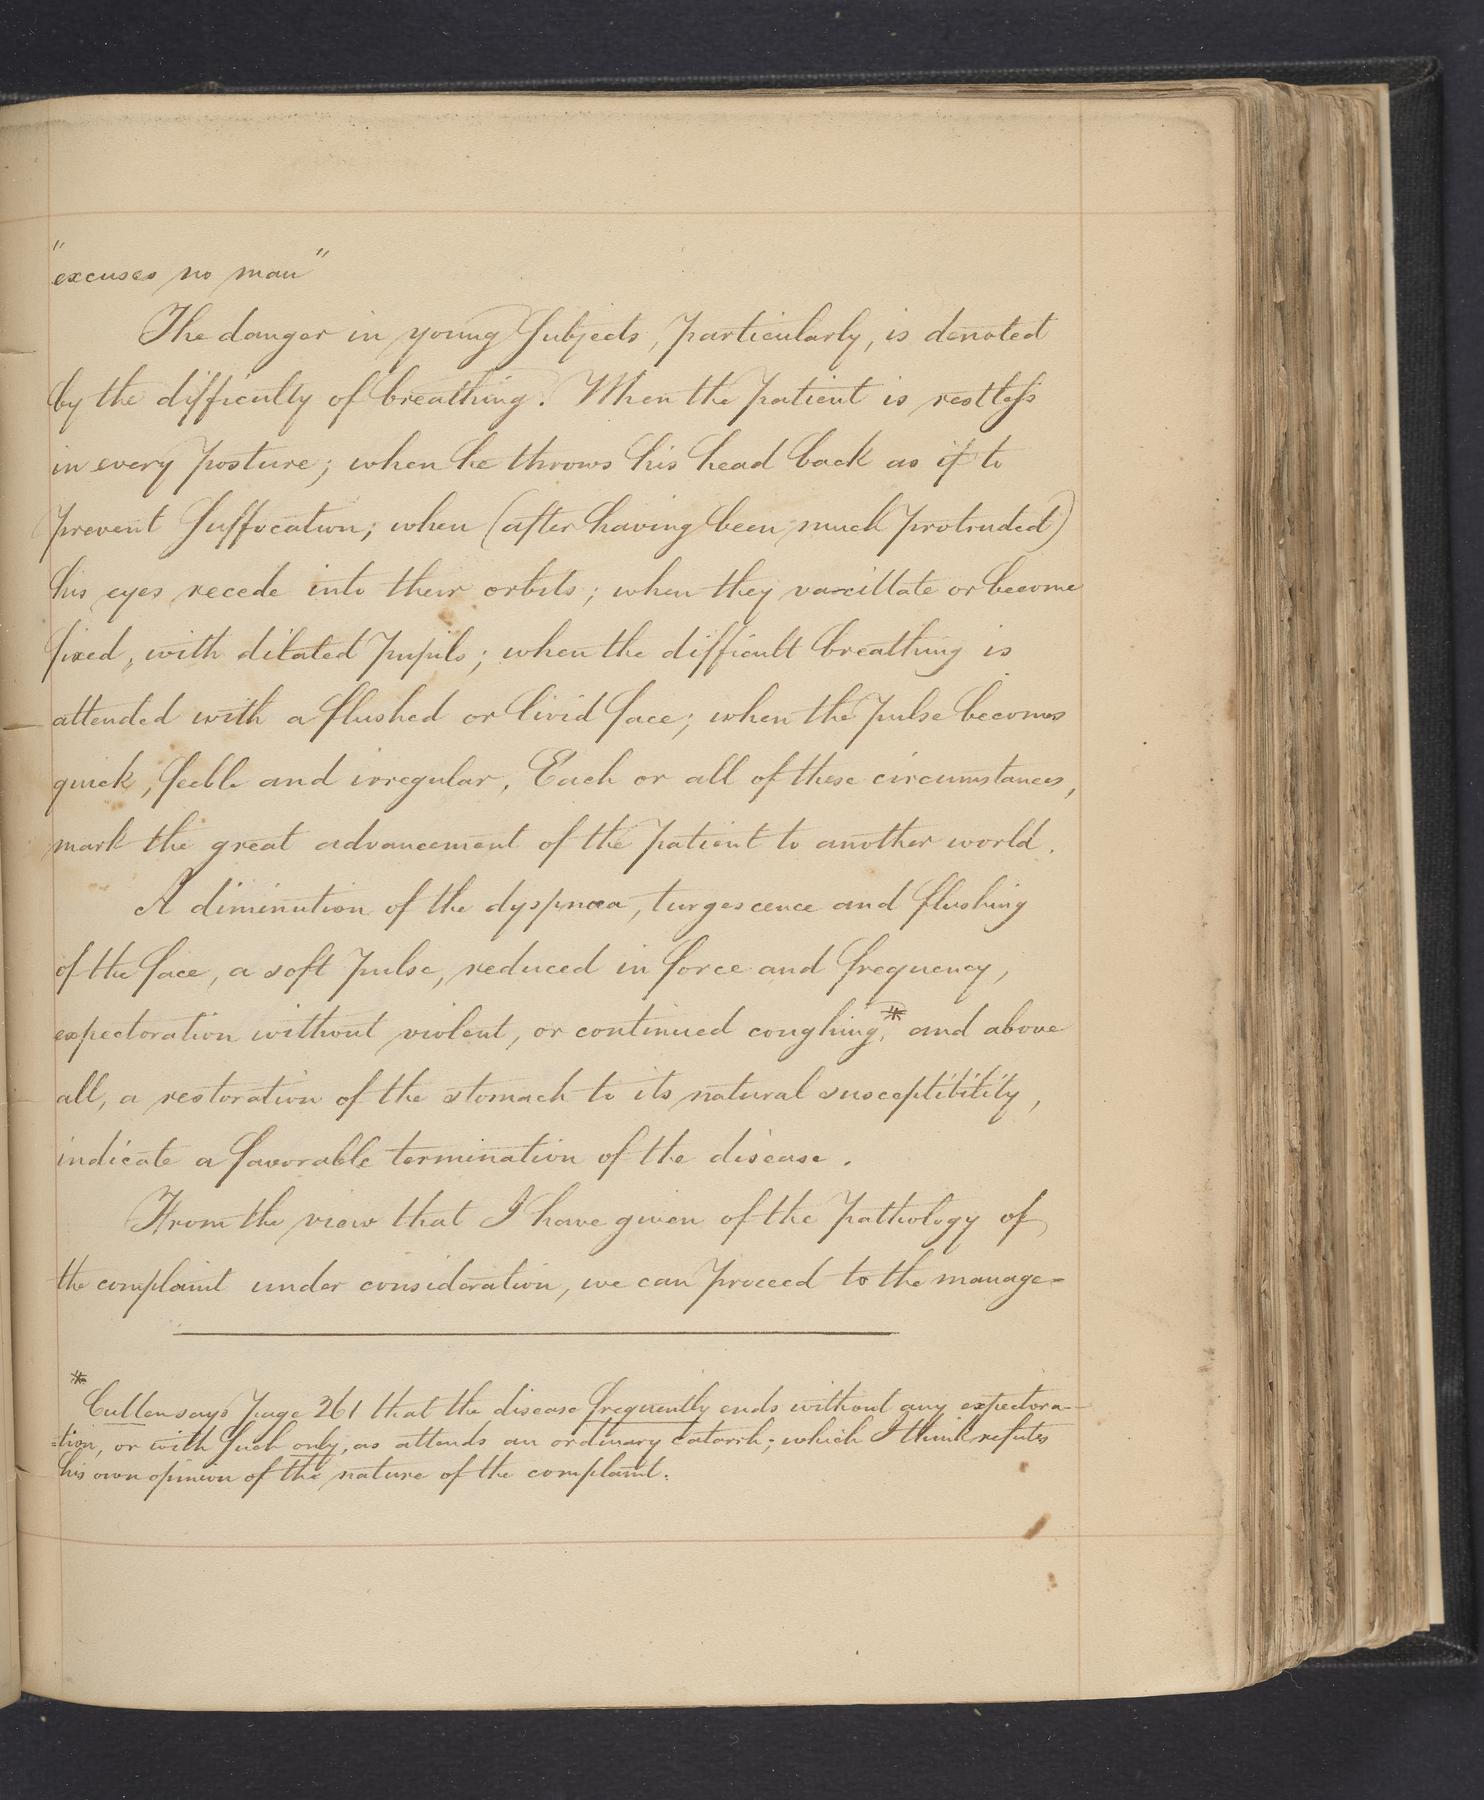 "excuses no man"
The danger in young Subjects, particularly, is denoted
by the difficulty of breathing. When the patient is restless
in every posture; when he throws his head back as if to
prevent Suffocation; when (after having been much protruded)
his eyes recede into their orbits; when they vascillate or become
fixed, with dilated pupils; when the difficult breathing is
attended with a flushed or livid face; when the pulse becomes
quick, feeble and irregular, Each or all of these circumstances,
mark the great advancement of the patient to another world.
A diminution of the dyspnœa, turgescence and flushing
of the face, a soft pulse, reduced in force and frequency,
expectoration without violent, or continued coughing,* and above
all, a restoration of the stomach to its natural susceptibility,
indicate a favorable termination of the disease.
From the view that I have given of the pathology of
the complaint under consideration, we can proceed to the manage=
* Cullen says page 261 that the disease frequently ends without any expectora-
=tion, or with Such only, as attends an ordinary catarrh; which I think refutes
his own opinion of the nature of the complaint.